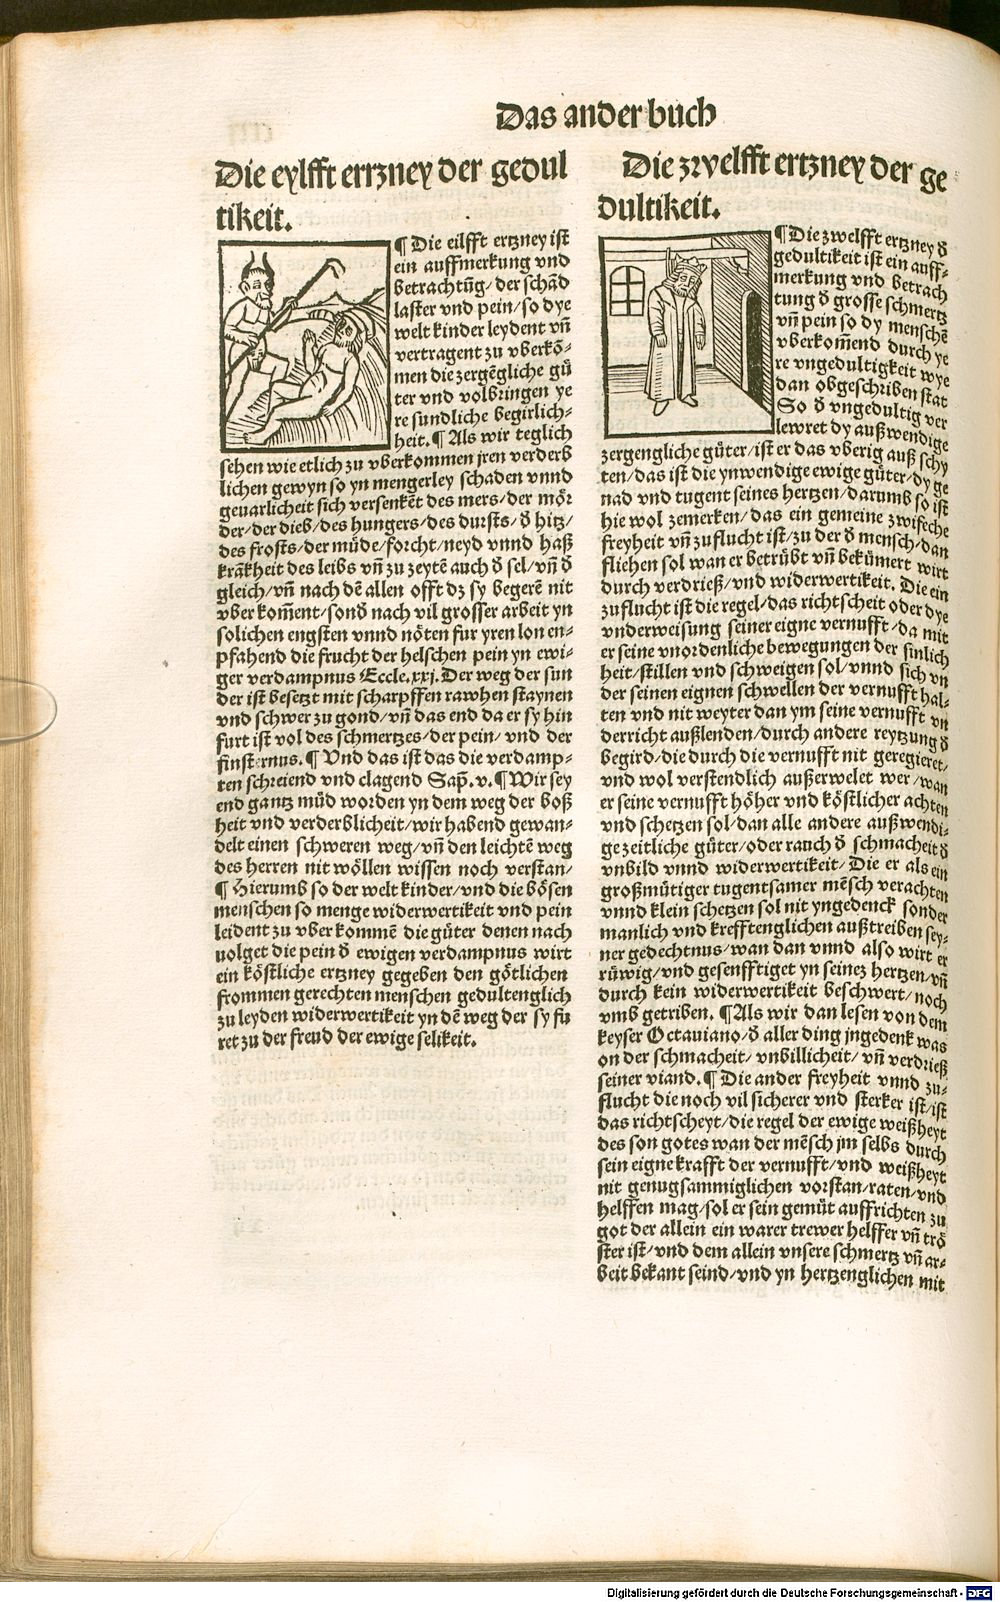 Das ander buch
Die eylfft errzney der gedul
tikeit.
¶ Die eilfft ertzney ist
ein auffmerkung vnd
betrachtūg/ der schād
laster vnd pein/ so dye
welt kinder leydent vn̄
vertragent zu vberkō-
men die zergēgliche gů
ter vnd volbringen ye
re sundliche begirlich-
heit. ¶ Als wir teglich
sehen wie etlich zu vberkommen jren verderb
lichen gewyn so yn mengerley schaden vnnd
geuarlicheit sich versenkēt des mers/ der mör
der/ der dieb/ des hungers/ des dursts/ d̄ hitz/
des frosts/ der müde/ forcht/ neyd vnnd haß
krākheit des leibs vn̄ zu zeytē auch d̄ sel/ vn̄ d̄
gleich/ vn̄ nach dē allen offt dz sy begerē nit
vber kom̄ent/ sond̄ nach vil grosser arbeit yn
solichen engsten vnnd nöten fur yren lon en-
pfahend die frucht der helschen pein yn ewi-
ger verdampnus Eccle. xxj. Der weg der sun
der ist besetzt mit scharpffen rawhen staynen
vnd schwer zu gond/ vn̄ das end da er sy hin
furt ist vol des schmertzes/ der pein/ vnd der
finsternus. ¶ Vnd das ist das die verdamp-
ten schreiend vnd clagend Sap̄. v. ¶ Wir sey
end gantz müd worden yn dem weg der boß
heit vnd verderblicheit/ wir habend gewan-
delt einen schweren weg/ vn̄ den leichtē weg
des herren nit wöllen wissen noch verstan/
¶ Hierumb so der welt kinder/ vnd die bösen
menschen so menge widerwertikeit vnd pein
leident zu vberkommē die güter denen nach
volget die pein d̄ ewigen verdampnus wirt
ein köstliche ertzney gegeben den götlichen
frommen gerechten menschen gedultenglich
zu leyden widerwertikeit yn dē weg der sy fu
ret zu der freud der ewige selikeit.
Die zwelfft ertzney der ge
dultikeit.
¶ Die zwelfft ertzney d̄
gedultikeit ist ein auff-
merkung vnd betrach
tung d̄ grosse schmertz
vn̄ pein so dy menschē
vberkom̄end durch ye
re vngedultigkeit wye
dan obgeschriben stat
So d̄ vngedultig ver
lewret dy außwendige
zergengliche güter/ ist er das vberig auß schy
ten/ das ist die ynwendige ewige güter/ dy ge
nad vnd tugent seines hertzen/ darumb so ist
hie wol zemerken/ das ein gemeine zwifeche
freyheit vn̄ zuflucht ist/ zu der d̄ mensch/ dan
fliehen sol wan er betrübt vn̄ bekümert wirt
durch verdrieß/ vnd widerwertikeit. Die ein
zuflucht ist die regel/ das richtscheit oder dye
vnderweisung seiner eigne vernufft/ da mit
er seine vnordenliche bewegungen der sinlich
heit/ stillen vnd schweigen sol/ vnnd sich vn
der seinen eignen schwellen der vernufft hal-
ten vnd nit weyter dan ym seine vernufft vn
derricht außlenden/ durch andere reytzung d̄
begird/ die durch die vernufft nit geregieret/
vnd wol verstendlich außerwelet wer/ wan
er seine vernufft höher vnd köstlicher achten
vnd schetzen sol/ dan alle andere außwendi-
ge zeitliche güter/ oder rauch d̄ schmacheit d̄
vnbild vnnd widerwertikeit/ Die er als ein
großmütiger tugentsamer mēsch verachten
vnnd klein schetzen sol nit yngedenck sonder
manlich vnd krefftenglichen außtreiben sey-
ner gedechtnus/ wan dan vnnd also wirt er
rüwig/ vnd gesenfftiget yn seinez hertzen/ vn̄
durch kein widerwertikeit beschwert/ noch
vmb getriben. ¶ Als wir dan lesen von dem
keyser Octauiano/ d̄ aller ding jngedenk was
on der schmacheit/ vnbillicheit/ vn̄ verdrieß
seiner viand. ¶ Die ander freyheit vnnd zu-
flucht die noch vil sicherer vnd sterker ist/ ist
das richtscheyt/ die regel der ewige weißheyt
des son gotes wan der mēsch jm selbs durch
sein eigne krafft der vernufft/ vnd weißheyt
nit genugsammiglichen vorstan/ raten/ vnd
helffen mag/ sol er sein gemüt auffrichten zu
got der allein ein warer trewer helffer vn̄ trö
ster ist/ vnd dem allein vnsere schmertz vn̄ ar-
beit bekant seind/ vnd yn hertzenglichen mit
Digitalisierung gefördert durch die Deutsche Forschungsgemeinschaft - DFG